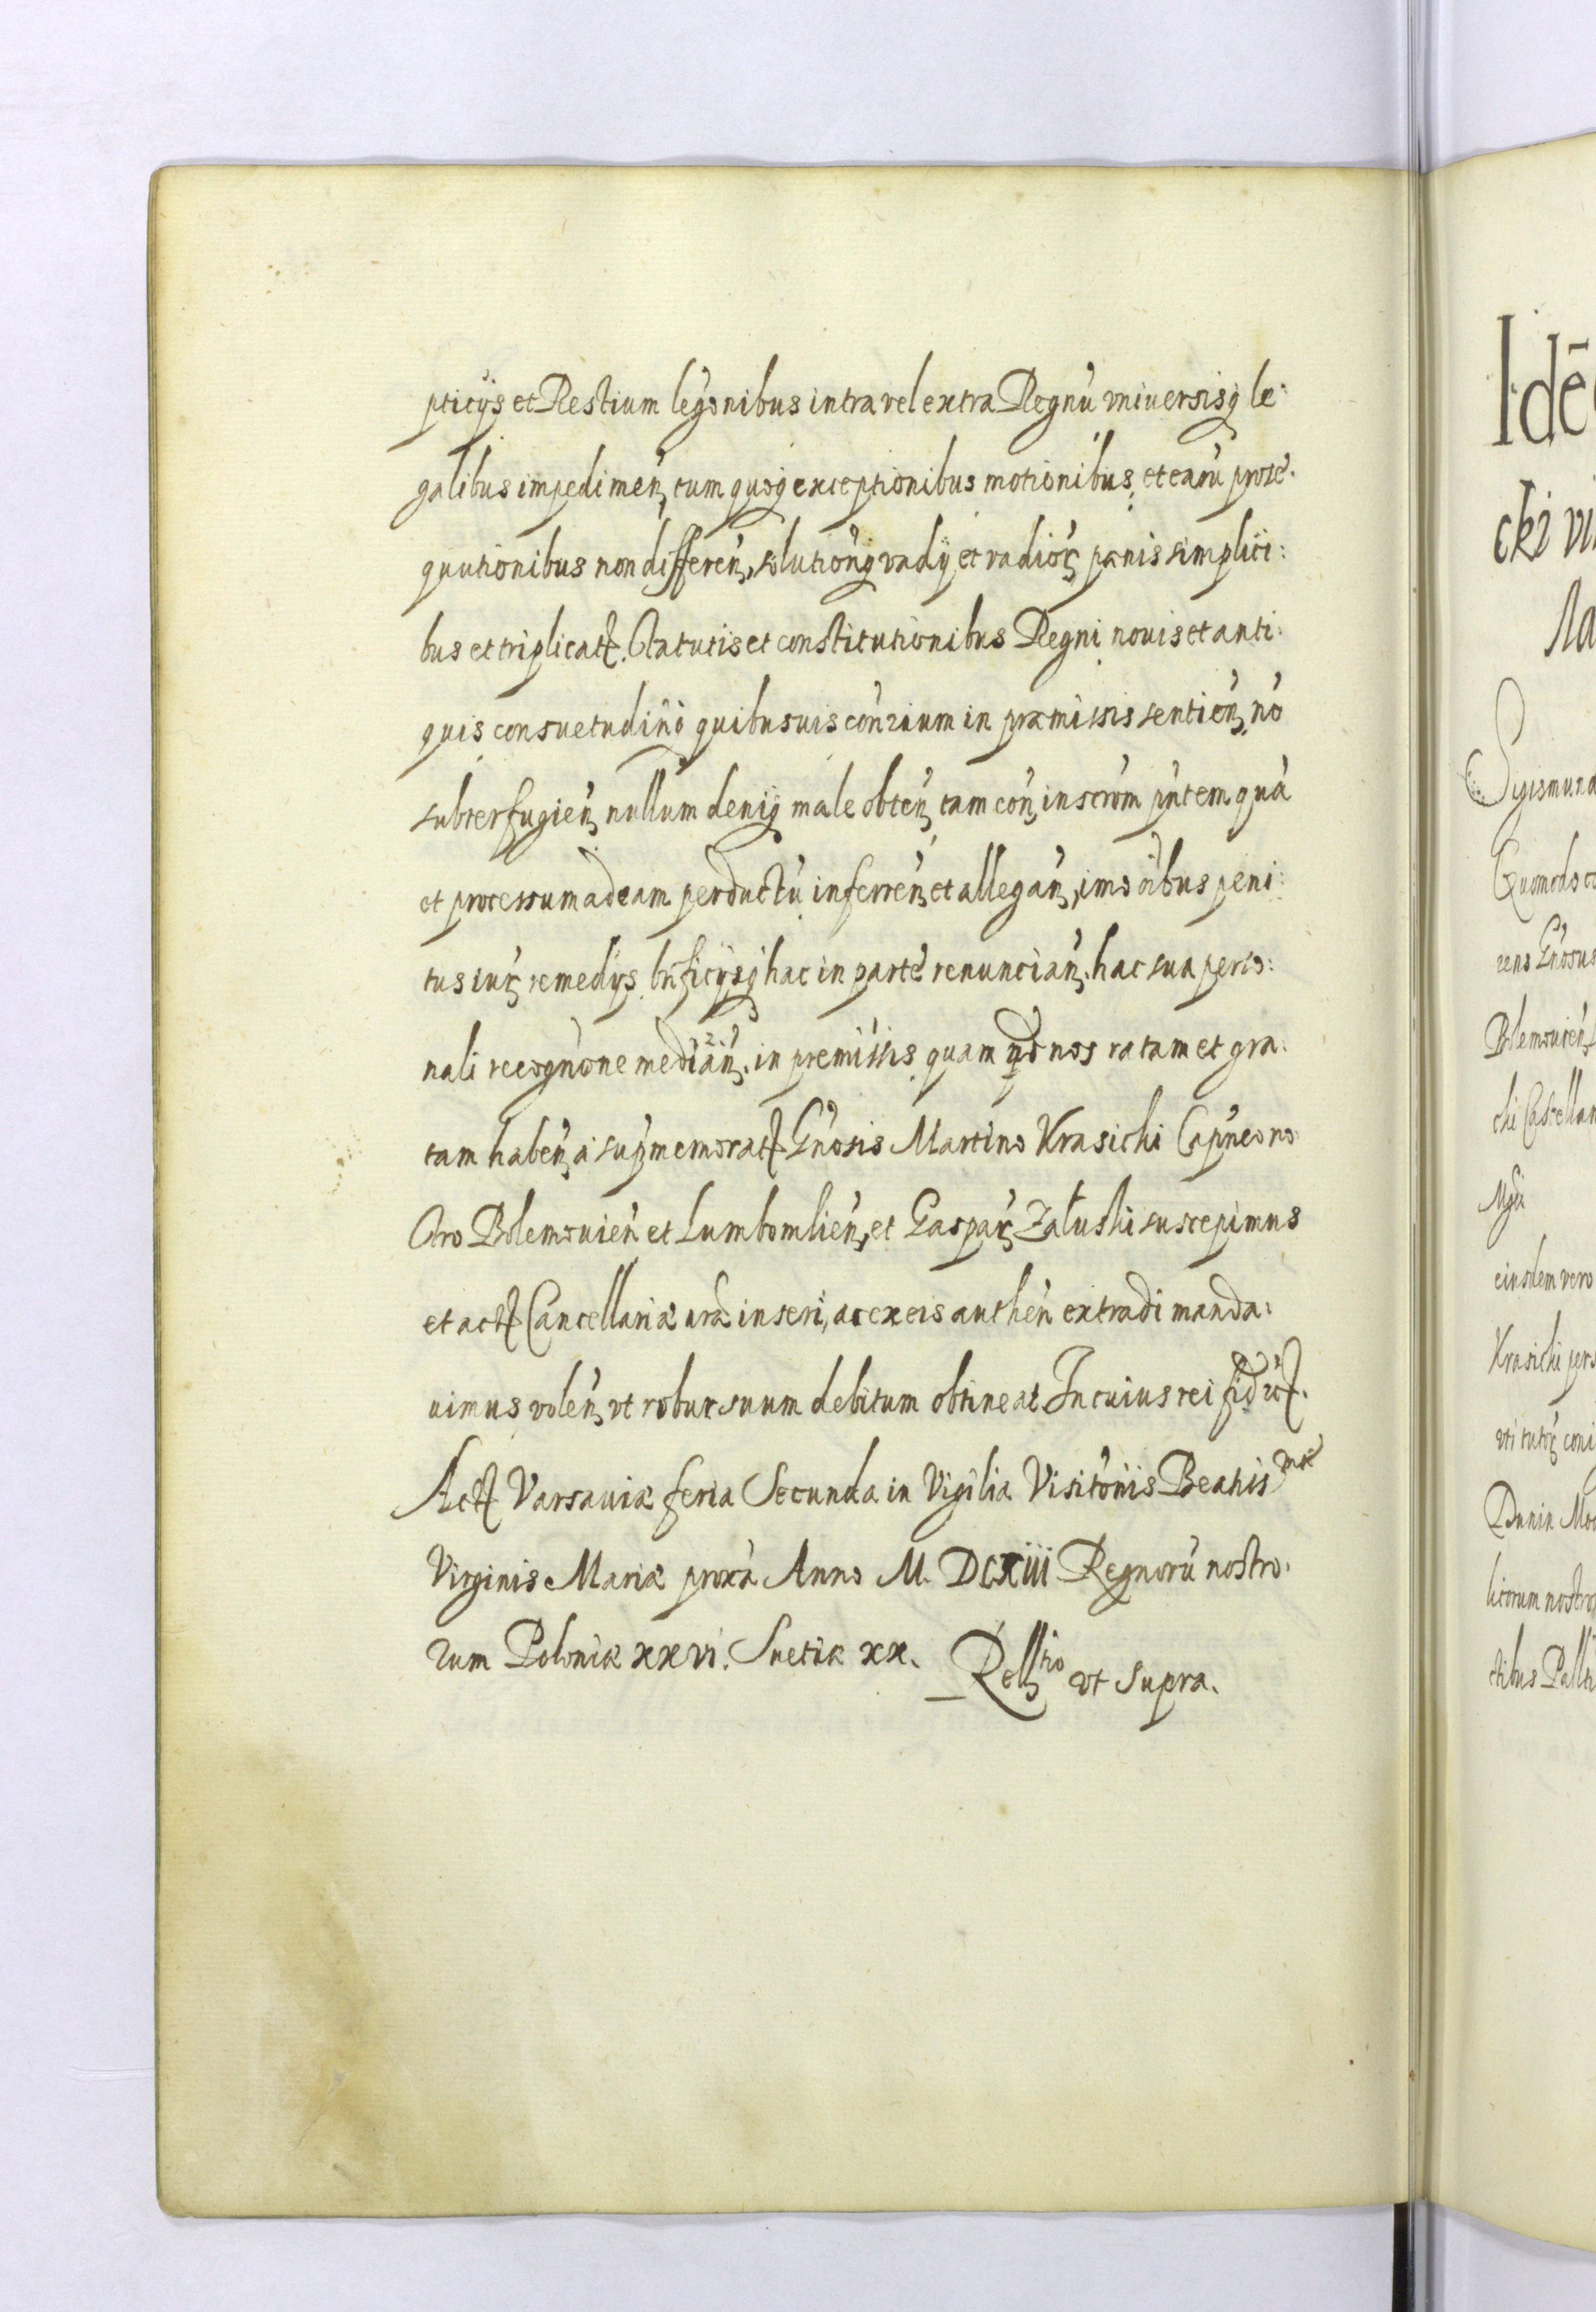 pticijs et Restium legonibus intra vel extra Regnu vniuersisq le:
galibus impedimen, cum quoq exceptionibus motionibus et earu prose:
quutionibus non differen, solutionq vadij et vadior pænis simplici:
bus et triplicat. Statutis et constitutionibus Regni nouis et anti:
quis consuetudino quibusuis conrium in præmissis sentien, no
subterfugien, nullum deniq male obten, tam con, inscrom pntem qua
et processum ad eam perductu inferren, et allegan, imo oibus peni:
tus iur remedijs bnficijsq hac in parte renuncian, hac sua perso:
nali recognone median. in premissis quam qd nos ratam et gra:
tam haben, a supmemorat Gnosis Martino Krasicki Capneo no:
stro Bolemouien et Lumbomlien, et Gaspar Załuski suscepimus
et act Cancellariæ nræ inseri, ac ex eis authen extradi manda:
uimus volen, vt robur suum debitum obtineat In cuius rei fid
Act Varsauiæ feria Secunda in Vigilia Visitonis Beatis mæ
Virginis Mariæ proxa Anno M. DCXiii Regnoru nostro:
rum Poloniæ xxvi. Suetiæ xx. Rell tio vt supra.
Idē
cki vi
Sigismund
Quomodo co
rens Gnosus
cki Castellan
eiusdem vero
Krasicki pers
Dunin
licorum nostro